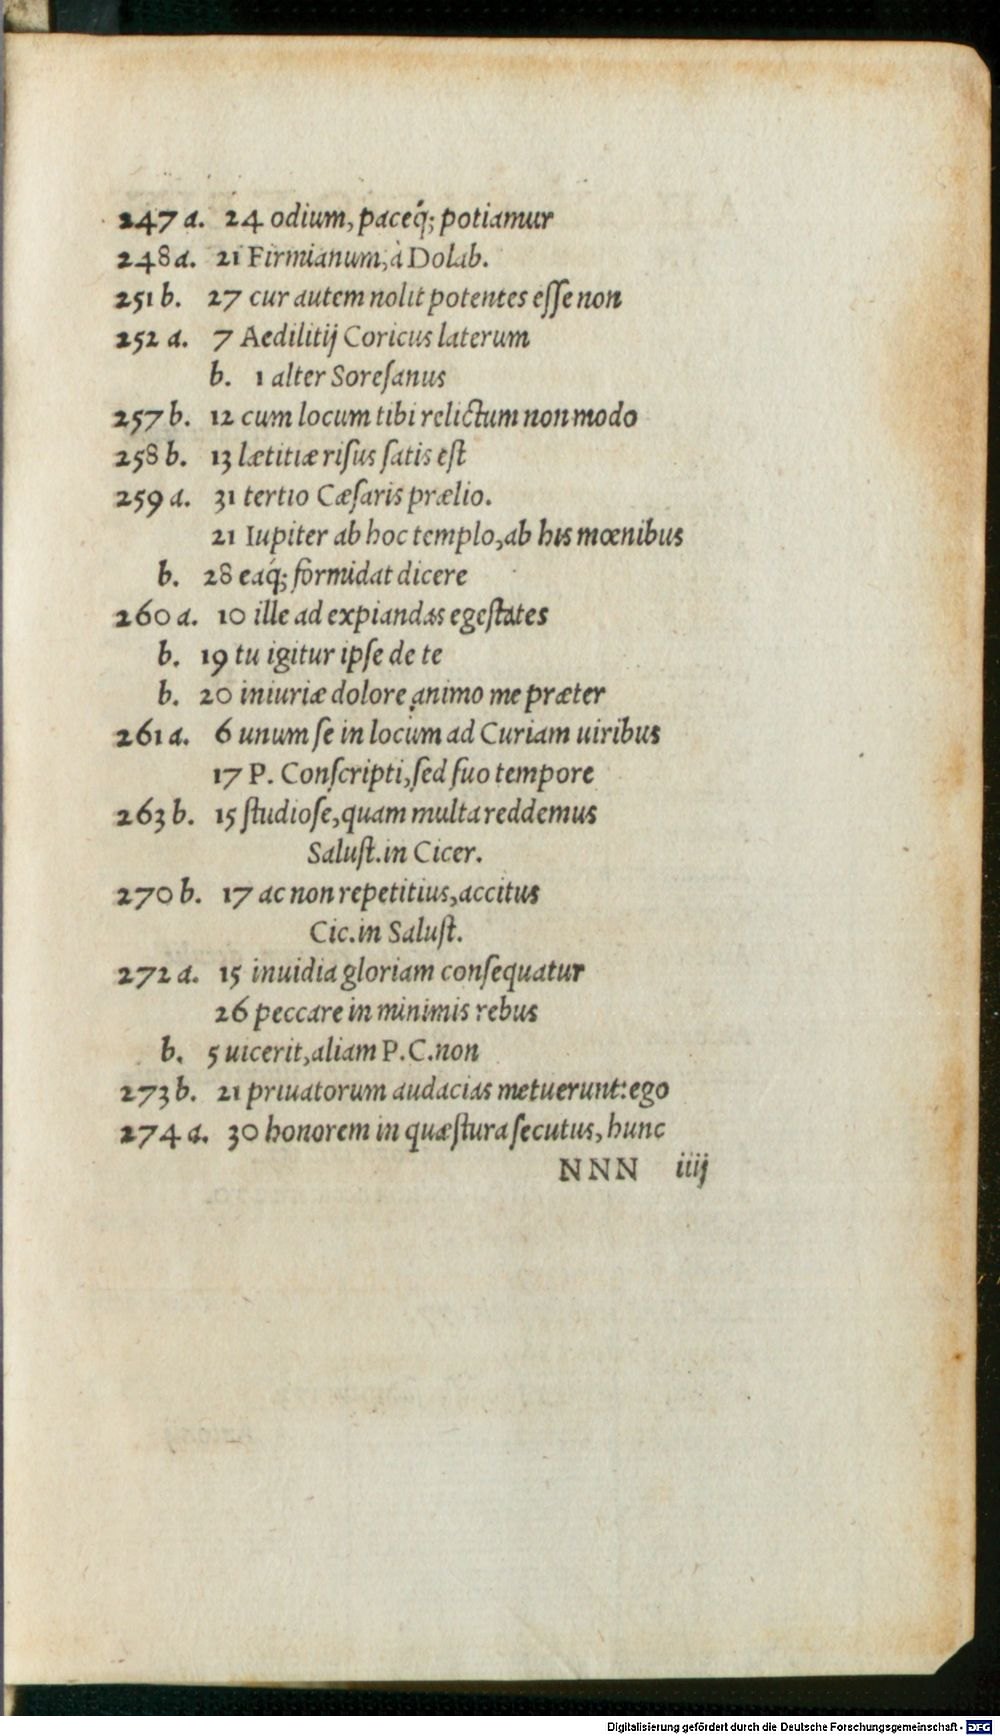 247 a. 24 odium, paceq́; potiamur
248 a. 21 Firmianum, à Dolab.
251 b. 27 cur autem nolit potentes eſſe non
252 a. 7 Aedilitij Coricus laterum
b. 1 alter Soreſanus
257 b. 12 cum locum tibi relictum non modo
258 b. 13 lætitiæ riſus ſatis eſt
259 a. 31 tertio Cæſaris prælio.
21 Iupiter ab hoc templo, ab his mœnibus
b. 28 eaq́; formidat dicere
260 a. 10 ille ad expiandas egeſtates
b. 19 tu igitur ipſe de te
b. 20 iniuriæ dolore animo me præter
261 a. 6 unum ſe in locum ad Curiam uiribus
17 P. Conſcripti, ſed ſuo tempore
263 b. 15 ſtudioſe, quam multa reddemus
Saluſt. in Cicer.
270 b. 17 ac non repetitius, accitus
Cic. in Saluſt.
272 a. 15 inuidia gloriam conſequatur
26 peccare in minimis rebus
b. 5 uicerit, aliam P. C. non
273 b. 21 priuatorum audacias metuerunt: ego
274 a. 30 honorem in quæſtura ſecutus, hunc
NNN iiij
Digitalisierung gefördert durch die Deutsche Forschungsgemeinschaft - DFG